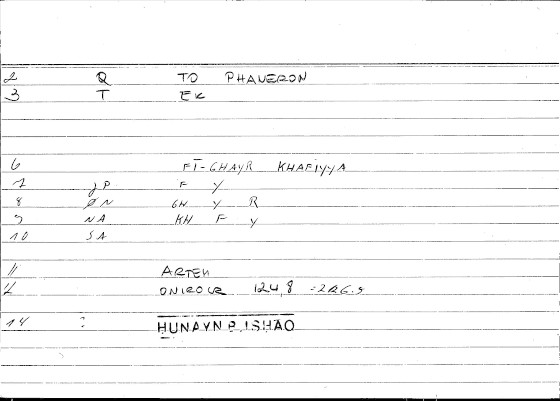 2 Q TO PHANERON
3 T EK
6 FĪ-GHAYR KHAFIYYA
7 jP F Y
8 ØN GH Y R
9 NA KH F Y
10 SA
11 ARTEM
12 ONIROCR 124,8 =226.9
14 ? HUNAYN B. ISHAQ